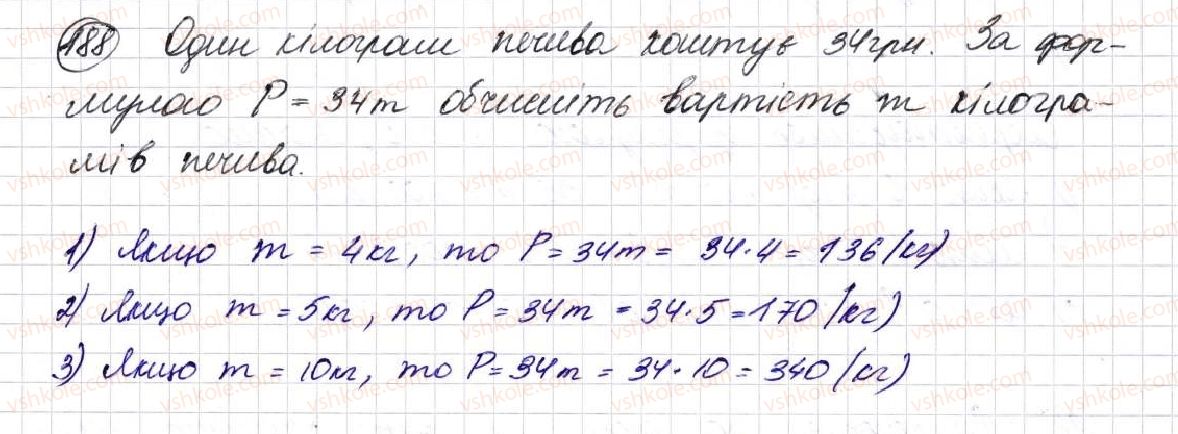 188 Один кілограм печива коштує 34 грн. За фор-
мулою P = 34m обчисліть вартість m кілогра-
мів печива.
1) Якщо m = 4кг, то P = 34m = 34·4 = 136 (кг)
2) Якщо m = 5кг, то P = 34m = 34·5 = 170 (кг)
3) Якщо m = 10кг, то P = 34m = 34·10 = 340 (кг)